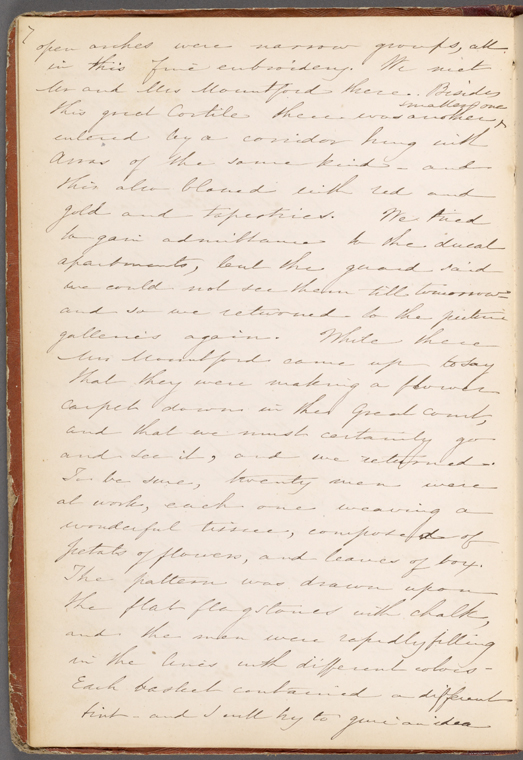 7
open arches were narrow groups, all
in this fine embroidery. We met
Mr and Mrs Mountford there. Besides
this great Cortile there was another smaller one,
entered by a corridor hung with
Arras of the same kind - and
this also blazed with red and
gold and tapestries. We tried
to gain admittance to the ducal
apartments, but the guard said
we could not see them till tomorrow -
and so we returned to the picture
galleries again. While there
Mrs Mountford came up to say
that they were making a flower
carpet down in the Great Court,
and that we must certainly go
and see it, and we returned.
To be sure, twenty men were
at work, each one weaving a
wonderful tissue, composed of
petals of flowers, and leaves of box.
The pattern was drawn upon
the flat flagstones with chalk,
and the men were rapidly filling
in the lines with different colors -
Each basket contained a different
tint - and I will try to give an idea